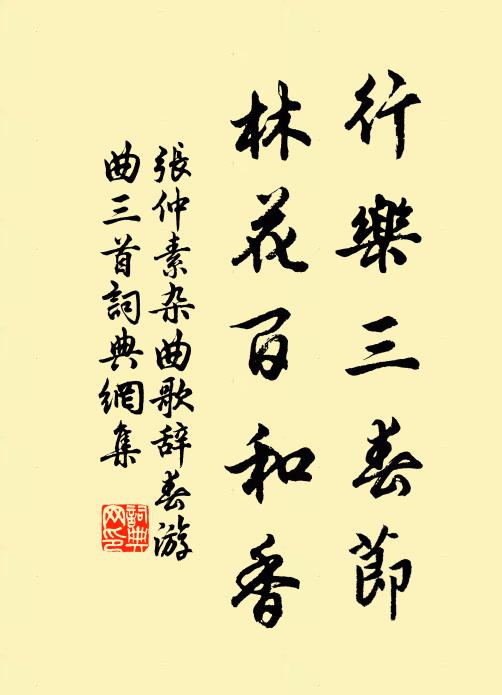 行樂三春節
林花百和香
張仲素杂曲歌辞春游
曲三首詞典網集
詞典网印